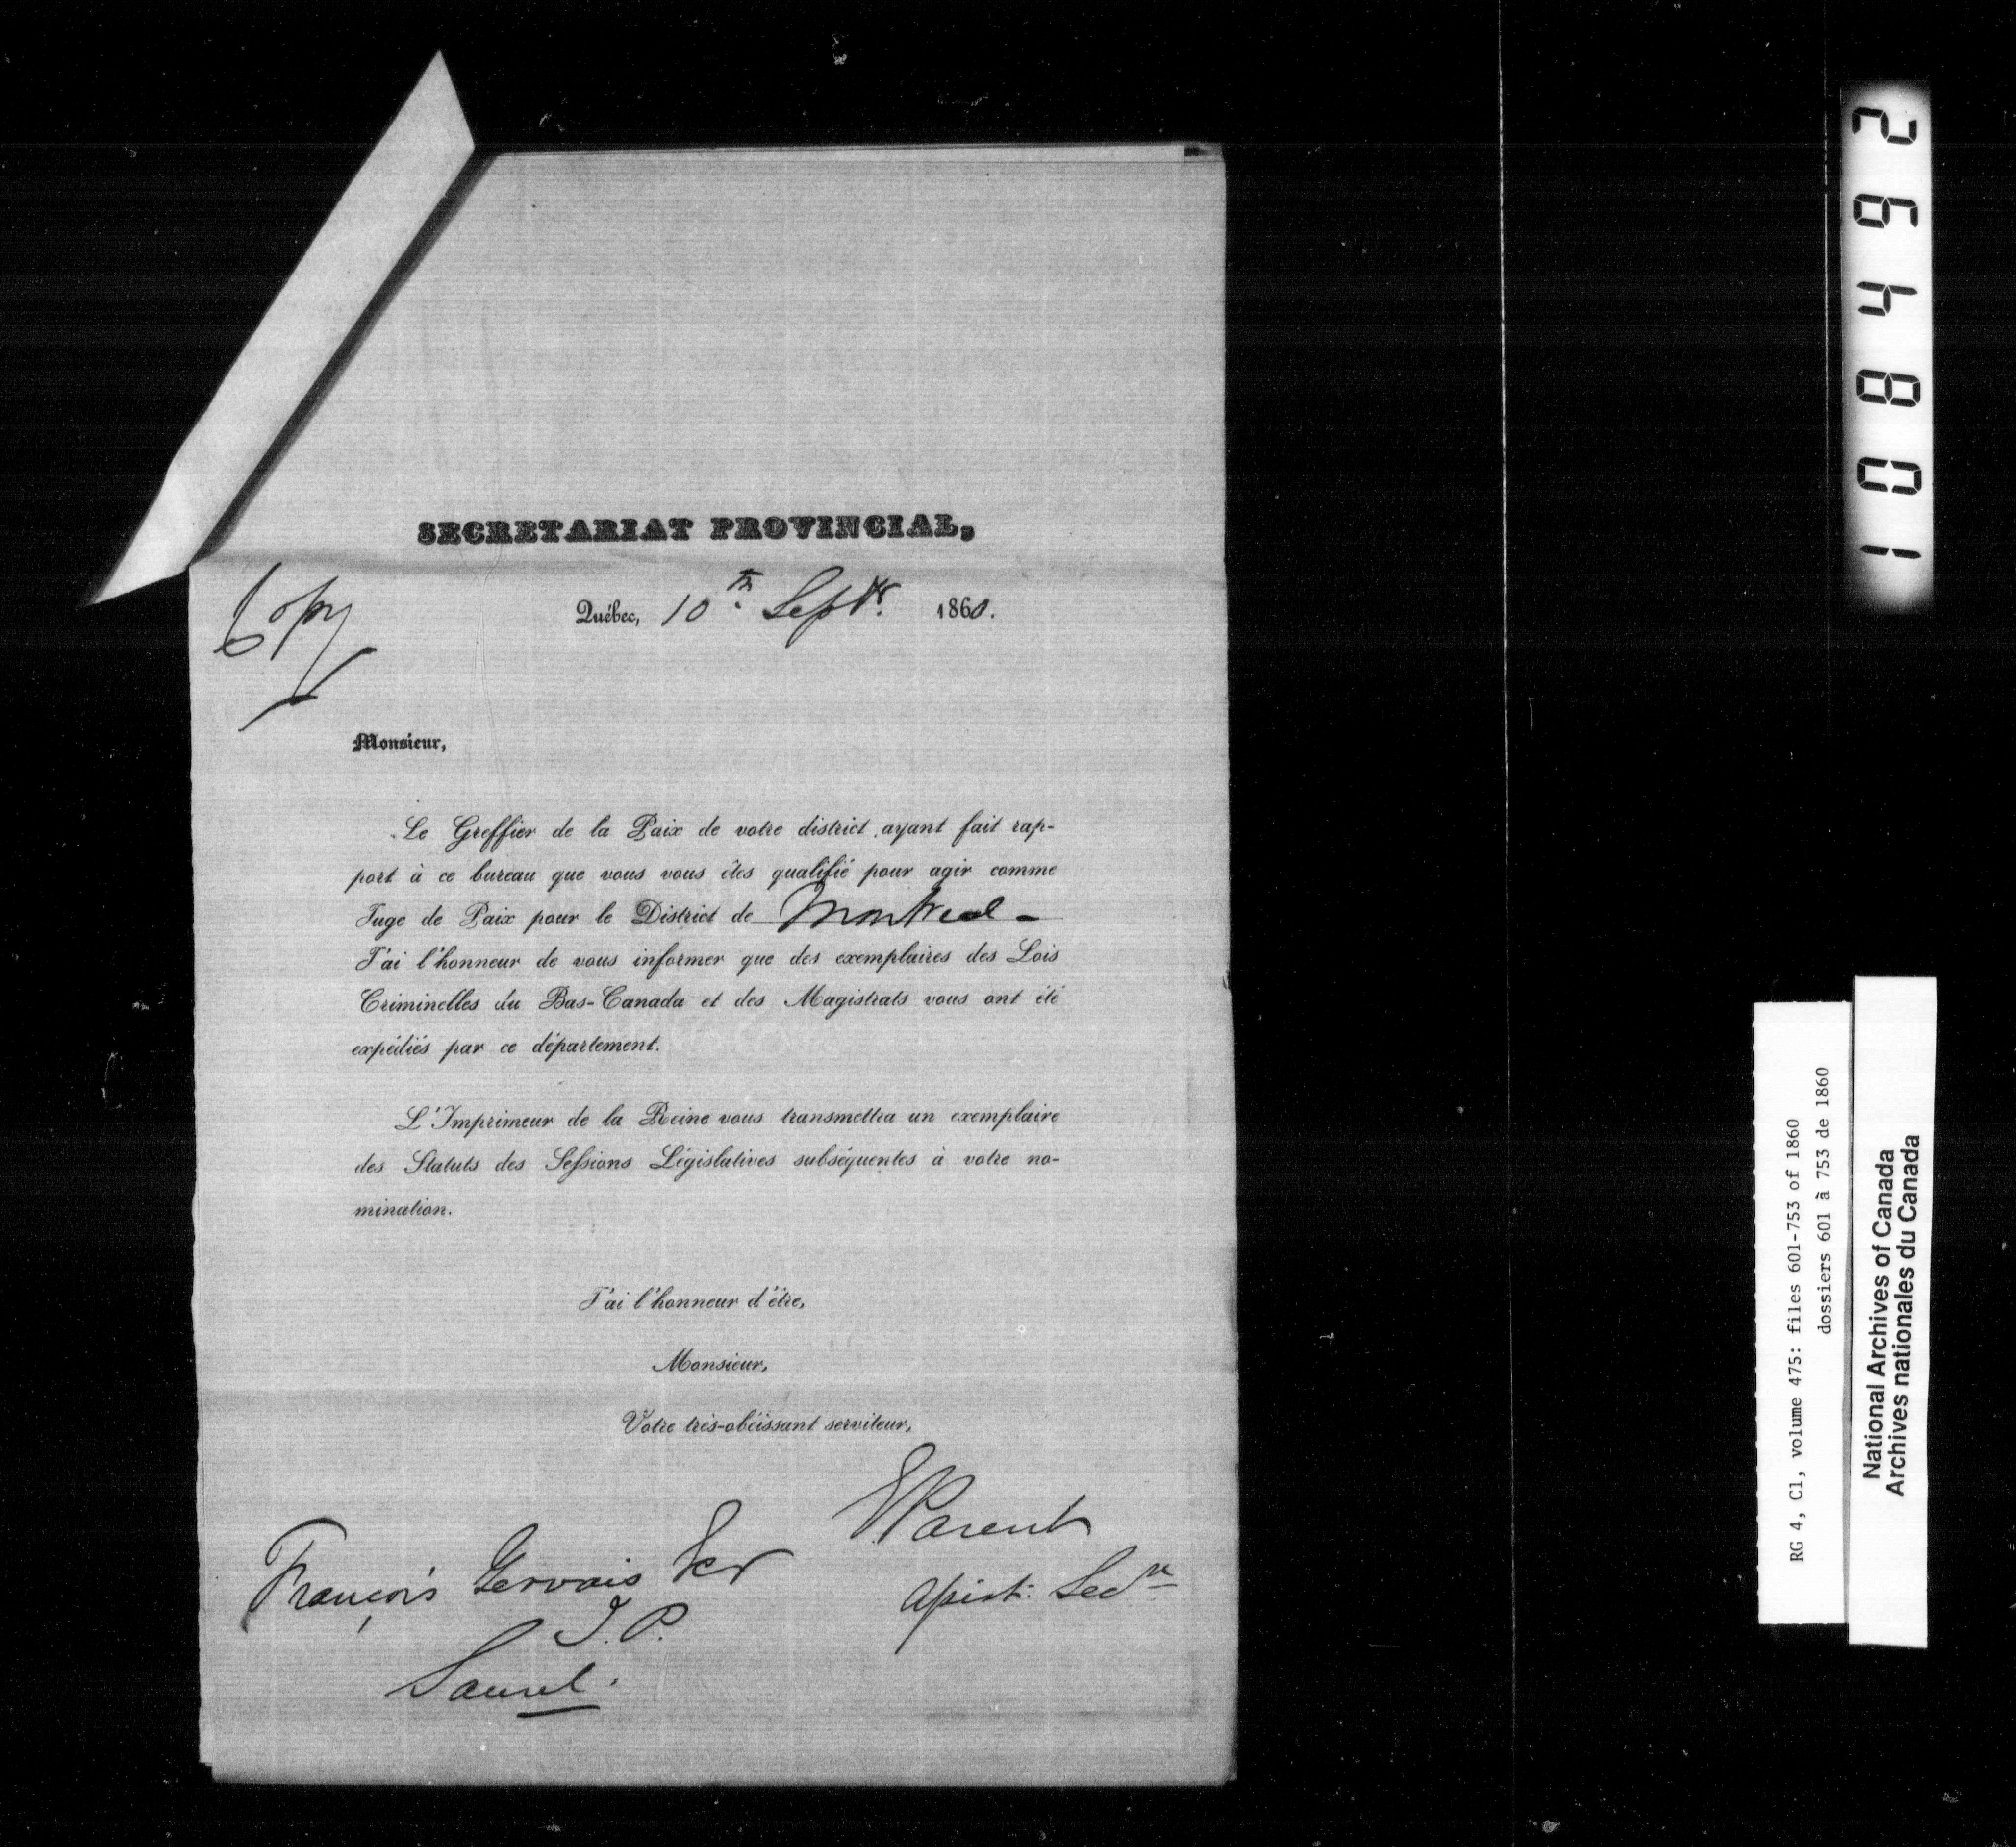 SECRETARIAT PROVINCIAL,
Copy
Québec, 10th Septr. 1860.
Monsieur,
Le Greffier de la Paix de votre district ayant fait rap-
port à ce bureau que vous vous êtes qualifié pour agir comme
Juge de Paix pour le District de Montreal -
J'ai l'honneur de vous informer que des exemplaires des Lois
Criminelles du Bas-Canada et des Magistrats vous ont été
expédiés par ce département.
L'Imprimeur de la Reine vous transmettra un exemplaire
des Statuts des Sessions Législatives subséquentes à votre no-
mination.
J'ai l'honneur d'être,
Monsieur,
Votre très-obéissant serviteur,
E Parent
Assist: Secy
François Gervais Ecr
J. P.
Saurel.
1 0 8 4 6 2
RG 4, C1, volume 475: files 601-753 of 1860
dossiers 601 à 753 de 1860
National Archives of Canada
Archives nationales du Canada